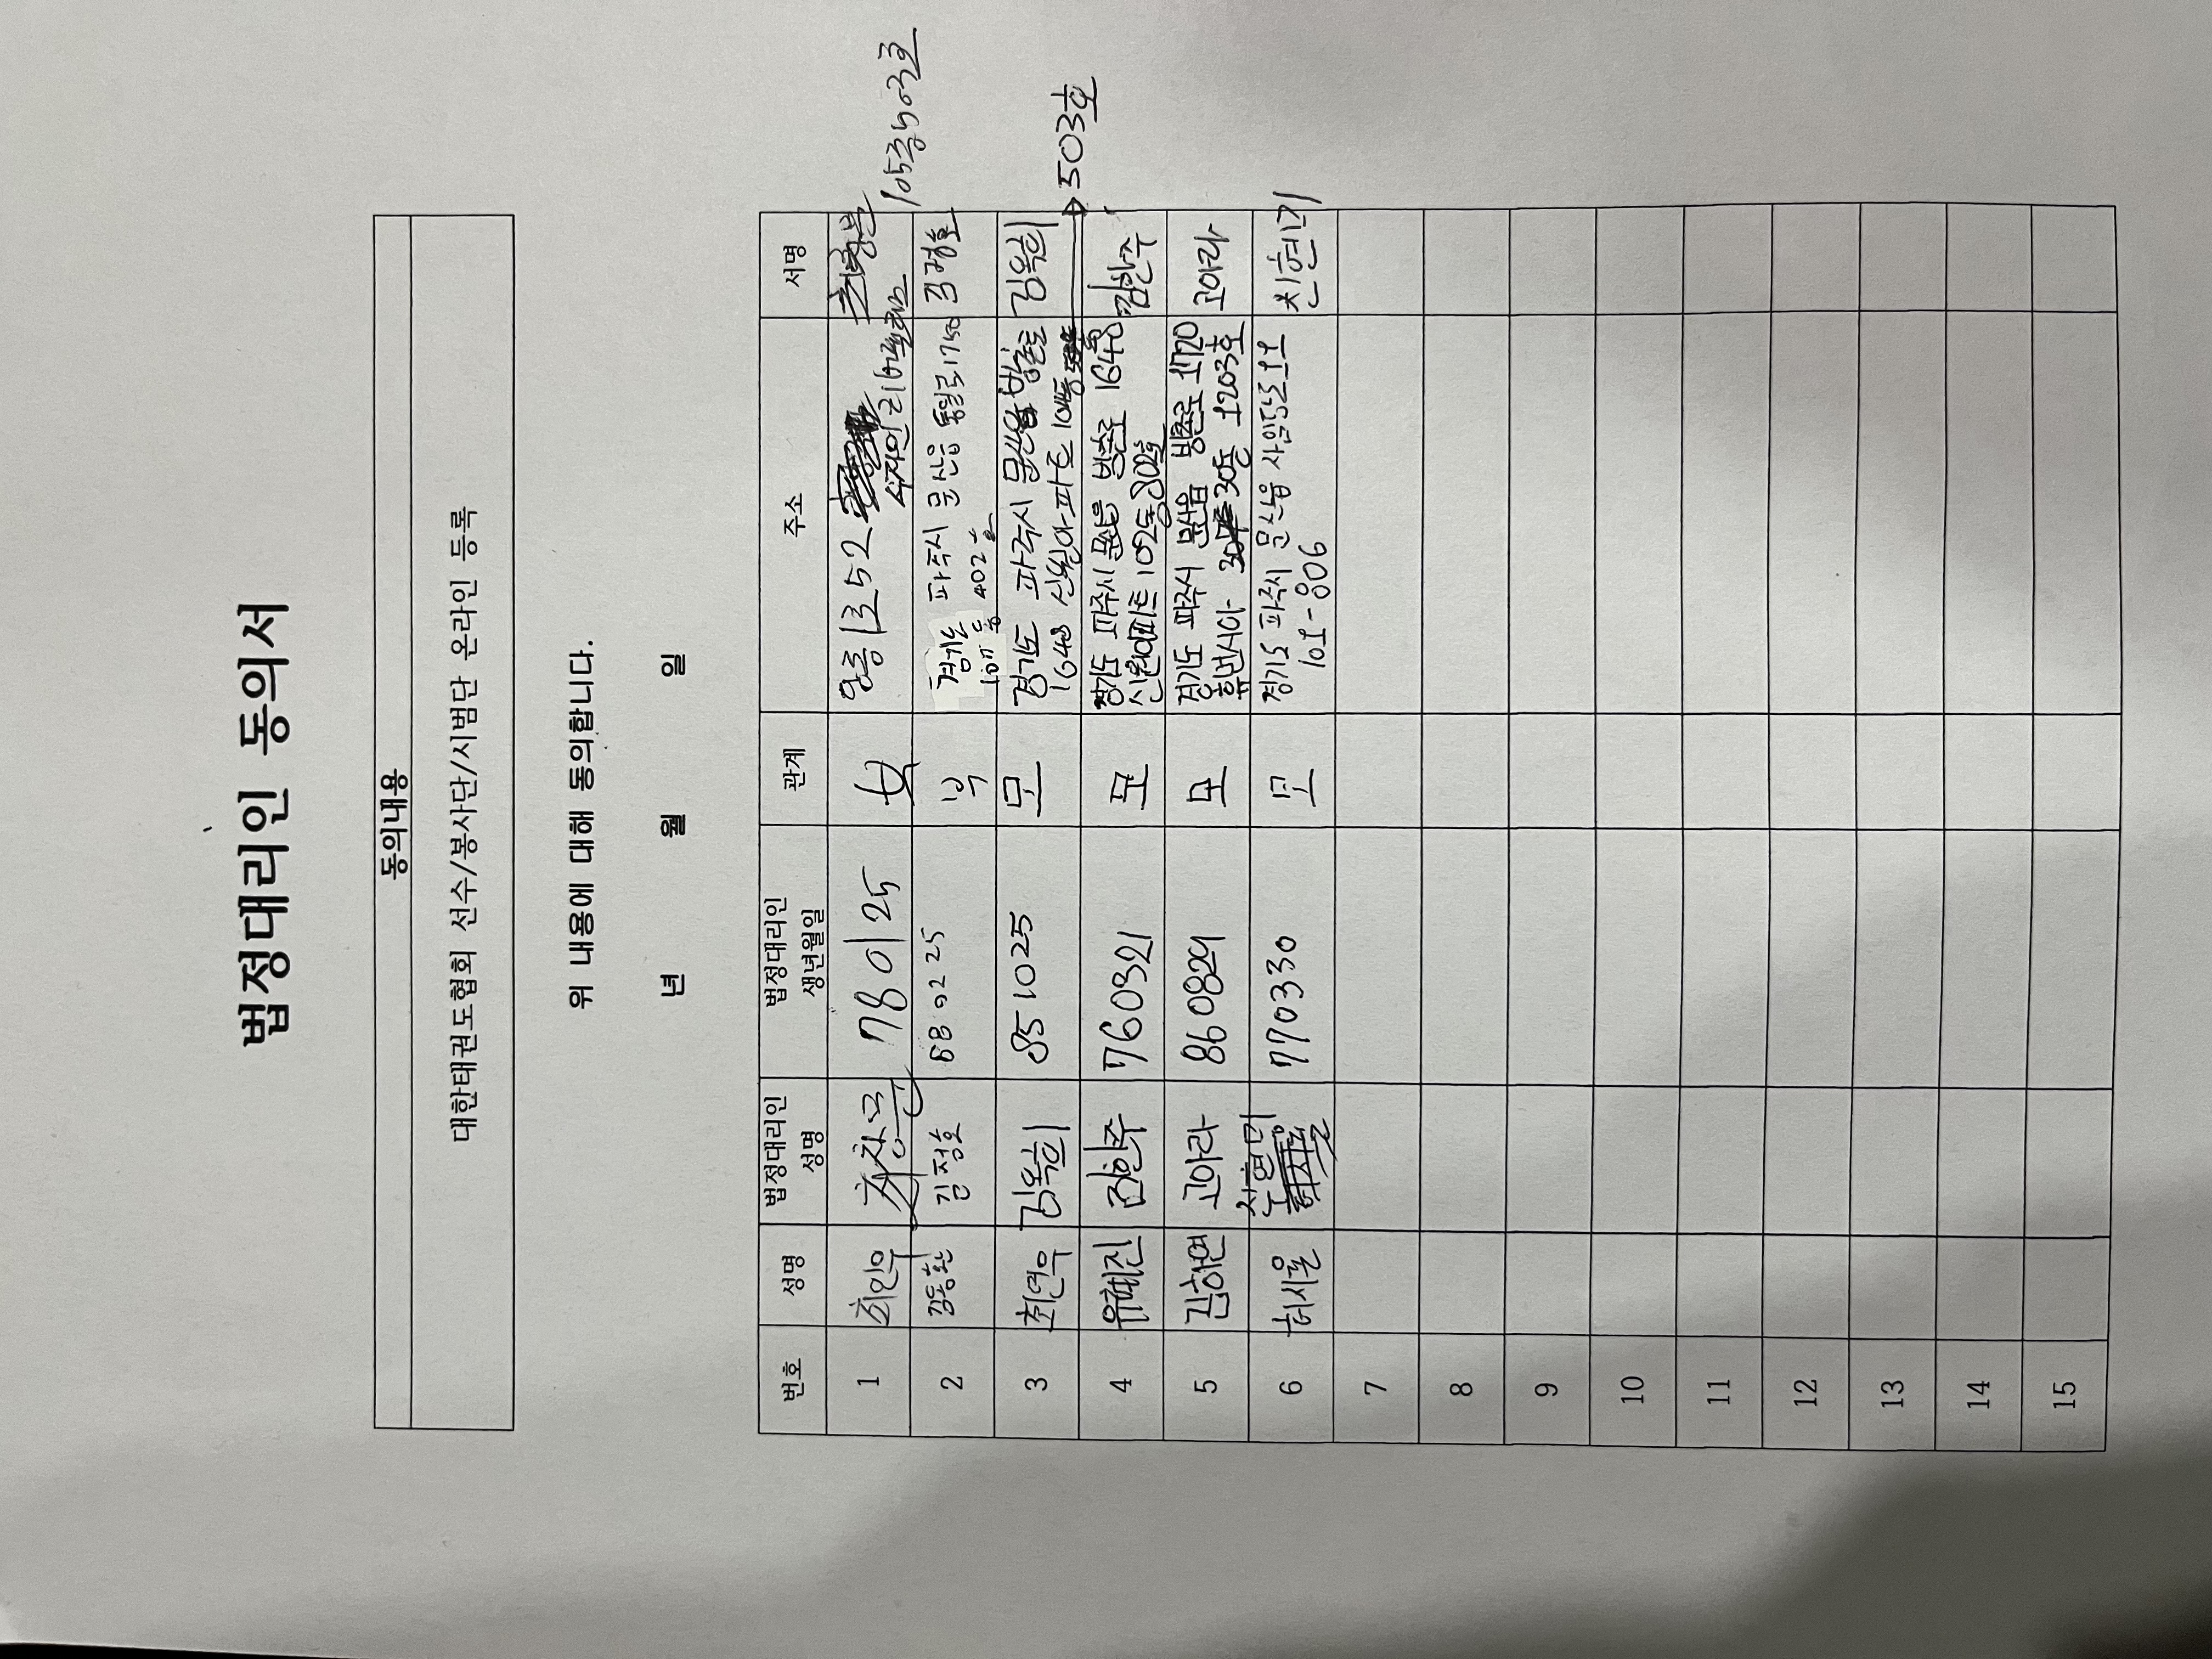 법정대리인 동의서
동의내용
대한태권도협회 선수/봉사단/시범단 온라인 등록
위 내용에 대해 동의합니다.
년 월 일
번호 성명 법정대리인 성명 법정대리인 생년월일 관계 주소 서명
1 최인우 780125 1352 105동503호
2 김동환 김정호 88.02.25 부 경기도 파주시 문산읍 통일로1750 김정호
107동 402호
3 최연우 김옥희 851025 모 경기도 파주시 문산읍 방촌로 김옥희
1648 신원아파트 104동 → 503호
4 유혜진 김한주 760321 모 경기도 파주시 문산읍 방촌로 1648 김한주
신원아파트 102동
5 김하연 고아라 860829 모 경기도 파주시 문산읍 방촌로 1720 고아라
휴먼시아 1203호
6 허시율 770330 모 경기도 파주시 문산읍
101-806
7
8
9
10
11
12
13
14
15